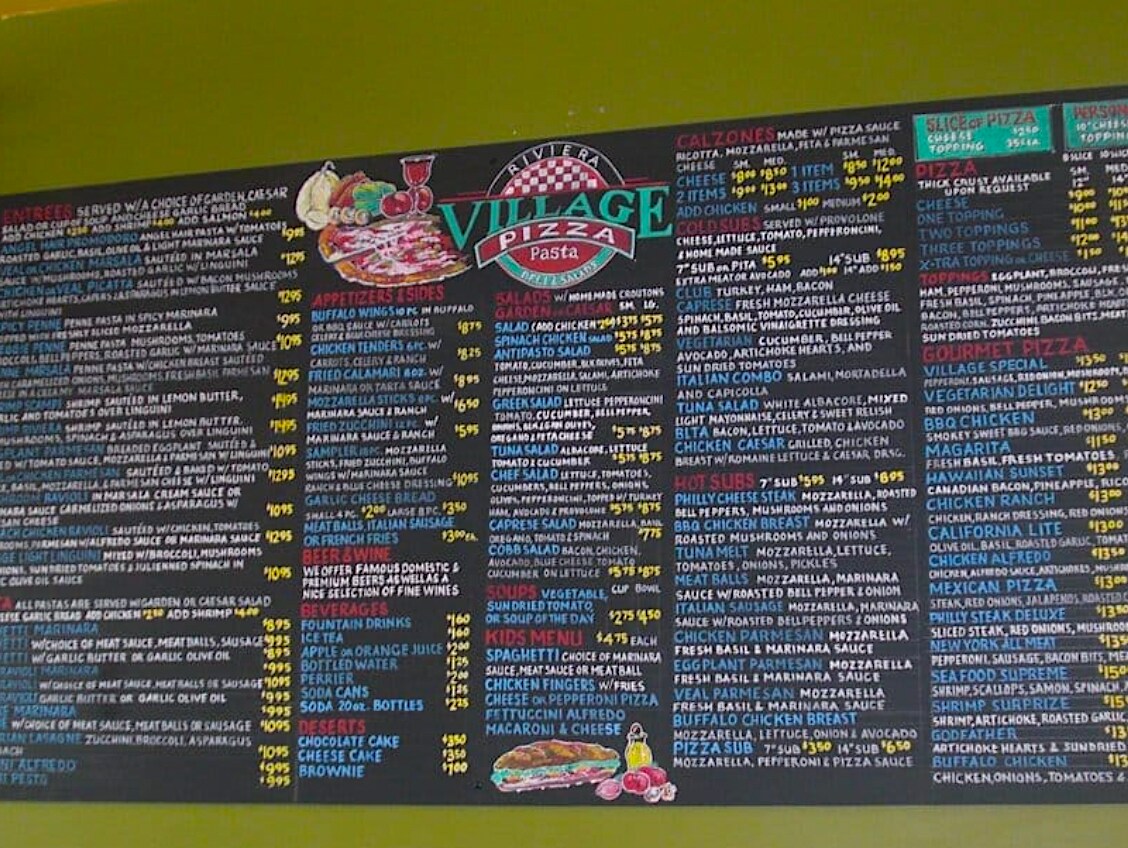 ENTREES SERVED W/A CHOICE OF GARDEN, CAESAR
SALAD OR CUP OF SOUP AND CHEESE GARLIC BREAD
ADD CHICKEN $2.50 ADD SHRIMP $4.00 ADD SALMON $4.00
ANGEL HAIR POMODORO ANGEL HAIR PASTA W/TOMATOES
ROASTED GARLIC, BASIL, & LIGHT MARINARA SAUCE $9.95
VEAL OR CHICKEN MARSALA SAUTEED IN MARSALA
SAUCE W/MUSHROOMS, ROASTED GARLIC W/LINGUINI $12.95
CHICKEN OR VEAL PICATTA SAUTEED W/
ARTICHOKE HEARTS, CAPERS
WITH LINGUINI $12.95
SPICY PENNE PENNE PASTA IN SPICY MARINARA
SLICED MOZZARELLA $9.95
PENNE PASTA MUSHROOMS, TOMATOES,
BROCCOLI, BELL PEPPERS, ROASTED GARLIC W/ MARINARA SAUCE $10.95
PENNE MARSALA PENNE PASTA W/CHICKEN BREAST SAUTEED
CARAMELIZED ONIONS, MUSHROOMS, FRESH BASIL, PARMESAN $12.95
SHRIMP SCAMPI SHRIMP SAUTEED IN LEMON BUTTER,
GARLIC AND TOMATOES OVER LINGUINI $14.95
RIVIERA SHRIMP SAUTEED IN LEMON BUTTER,
MUSHROOMS, SPINACH & ASPARAGUS OVER LINGUINI $14.95
EGGPLANT PARMESAN BREADED EGGPLANT SAUTEED &
W/TOMATO SAUCE, MOZZARELLA & PARMESAN W/LINGUINI $10.95
SAUTEED & BAKED W/ TOMATO
SAUCE, MOZZARELLA, & PARMESAN CHEESE W/LINGUINI $12.95
RAVIOLI IN MARSALA CREAM SAUCE OR
SAUCE CARMELIZED ONIONS & ASPARAGUS W/
CHEESE $10.95
CHICKEN RAVIOLI SAUTEED W/CHICKEN, TOMATOES
W/ALFREDO SAUCE OR MARINARA SAUCE $12.95
LIGHT LINGUINI MIXED W/BROCCOLI, MUSHROOMS
SUNDRIED TOMATOES & JULIENNED SPINACH IN
OLIVE OIL SAUCE $10.95
PASTA ALL PASTAS ARE SERVED W/GARDEN OR CAESAR SALAD
CHEESE GARLIC BREAD ADD CHICKEN $2.50 ADD SHRIMP $4.00
SPAGHETTI MARINARA $8.95
W/CHOICE OF MEAT SAUCE, MEATBALLS, SAUSAGE $9.95
W/GARLIC BUTTER OR GARLIC OLIVE OIL $8.95
RAVIOLI MARINARA $9.95
W/CHOICE OF MEAT SAUCE, MEATBALLS OR SAUSAGE $10.95
GARLIC BUTTER OR GARLIC OLIVE OIL $9.95
MARINARA $9.95
W/CHOICE OF MEAT SAUCE, MEATBALLS OR SAUSAGE $10.95
LASAGNE ZUCCHINI, BROCCOLI, ASPARAGUS
$10.95
ALFREDO $9.95
PESTO $9.95
RIVIERA
VILLAGE
PIZZA
Pasta
DELI & SALADS
APPETIZERS & SIDES
BUFFALO WINGS 10 PC. IN BUFFALO
OR BBQ SAUCE W/CARROTS,
CELERY & BLEU CHEESE DRESSING $8.75
CHICKEN TENDERS 6 PC. W/
CARROTS, CELERY & RANCH $8.25
FRIED CALAMARI 8 OZ. W/
MARINARA OR TARTAR SAUCE $8.95
MOZZARELLA STICKS 8 PC. W/
MARINARA SAUCE & RANCH $6.50
FRIED ZUCCHINI 12 PC. W/
MARINARA SAUCE & RANCH $5.95
SAMPLER 18 PC. MOZZARELLA
STICKS, FRIED ZUCCHINI, BUFFALO
WINGS W/ MARINARA SAUCE
RANCH & BLUE CHEESE DRESSING $10.95
GARLIC CHEESE BREAD
SMALL 4 PC. $2.00 LARGE 8 PC. $3.50
MEATBALLS, ITALIAN SAUSAGE
OR FRENCH FRIES $3.00 EA.
BEER & WINE
WE OFFER FAMOUS DOMESTIC &
PREMIUM BEERS AS WELL AS A
NICE SELECTION OF FINE WINES
BEVERAGES
FOUNTAIN DRINKS $1.60
ICE TEA $1.60
APPLE OR ORANGE JUICE $2.00
BOTTLED WATER $1.25
PERRIER $2.00
SODA CANS $1.25
SODA 20 OZ. BOTTLES $2.25
DESERTS
CHOCOLATE CAKE $3.50
CHEESE CAKE $3.50
BROWNIE $1.00
SALADS W/ HOMEMADE CROUTONS
GARDEN OR CAESAR SM. LG.
SALAD (ADD CHICKEN $2.50) $3.75 $5.75
SPINACH CHICKEN SALAD $5.75 $8.75
ANTIPASTO SALAD $5.75 $8.75
TOMATO, CUCUMBER, OLIVES, FETA
CHEESE, MOZZARELLA, SALAMI, ARTICHOKE
PEPPERONI ON LETTUCE
GREEK SALAD LETTUCE, PEPPERONCINI
TOMATO, CUCUMBER, BELL PEPPER,
ONIONS, KALAMATA OLIVES,
OREGANO & FETA CHEESE $5.75 $8.75
TUNA SALAD ALBACORE, LETTUCE
TOMATO & CUCUMBER $5.75 $8.75
CHEF SALAD LETTUCE, TOMATOES,
CUCUMBERS, BELL PEPPERS, ONIONS,
OLIVES, PEPPERONCINI, TOPPED W/ TURKEY
HAM, AVOCADO & PROVOLONE $5.75 $8.75
CAPRESE SALAD MOZZARELLA, BASIL
OREGANO, TOMATO & SPINACH $7.75
COBB SALAD BACON, CHICKEN,
AVOCADO, BLUE CHEESE, TOMATO
CUCUMBER ON LETTUCE $5.75 $8.75
SOUPS VEGETABLE, CUP BOWL
SUN DRIED TOMATO,
OR SOUP OF THE DAY $2.75 $4.50
KIDS MENU $4.75 EACH
SPAGHETTI CHOICE OF MARINARA
SAUCE, MEAT SAUCE OR MEATBALL
CHICKEN FINGERS W/ FRIES
CHEESE OR PEPPERONI PIZZA
FETTUCCINI ALFREDO
MACARONI & CHEESE
CALZONES MADE W/ PIZZA SAUCE
RICOTTA, MOZZARELLA, FETA & PARMESAN
SM. MED. SM. MED.
CHEESE $8.00 $8.50 1 ITEM $8.50 $12.00
2 ITEMS $9.00 $13.00 3 ITEMS $9.50 $14.00
ADD CHICKEN SMALL $1.00 MEDIUM $2.00
COLD SUBS SERVED W/ PROVOLONE
CHEESE, LETTUCE, TOMATO, PEPPERONCINI,
& HOME MADE SAUCE
7" SUB OR PITA $5.95 14" SUB $8.95
EXTRA MEAT OR AVOCADO ADD $1.00 14" ADD $1.50
CLUB TURKEY, HAM, BACON
CAPRESE FRESH MOZZARELLA CHEESE
SPINACH, BASIL, TOMATO, CUCUMBER, OLIVE OIL
AND BALSOMIC VINAIGRETTE DRESSING
VEGETARIAN CUCUMBER, BELL PEPPER
AVOCADO, ARTICHOKE HEARTS, AND
SUN DRIED TOMATOES
ITALIAN COMBO SALAMI, MORTADELLA
AND CAPICOLLA
TUNA SALAD WHITE ALBACORE, MIXED
LIGHT MAYONAISE, CELERY & SWEET RELISH
BLTA BACON, LETTUCE, TOMATO & AVOCADO
CHICKEN CAESAR GRILLED, CHICKEN
BREAST W/ ROMAINE LETTUCE & CAESAR DRSG.
HOT SUBS 7" SUB $5.95 14" SUB $8.95
PHILLY CHEESE STEAK MOZZARELLA, ROASTED
BELL PEPPERS, MUSHROOMS AND ONIONS
BBQ CHICKEN BREAST MOZZARELLA W/
ROASTED MUSHROOMS AND ONIONS
TUNA MELT MOZZARELLA, LETTUCE,
TOMATOES, ONIONS, PICKLES
MEAT BALLS MOZZARELLA, MARINARA
SAUCE W/ ROASTED BELL PEPPER & ONION
ITALIAN SAUSAGE MOZZARELLA, MARINARA
SAUCE W/ ROASTED BELL PEPPERS & ONIONS
CHICKEN PARMESAN MOZZARELLA
FRESH BASIL & MARINARA SAUCE
EGGPLANT PARMESAN MOZZARELLA
FRESH BASIL & MARINARA SAUCE
VEAL PARMESAN MOZZARELLA
FRESH BASIL & MARINARA SAUCE
BUFFALO CHICKEN BREAST
MOZZARELLA, LETTUCE, ONION & AVOCADO
PIZZA SUB 7" SUB $3.50 14" SUB $6.50
MOZZARELLA, PEPPERONI & PIZZA SAUCE
SLICE OF PIZZA
CHEESE $2.50
TOPPING 35¢ EA
PERSON
10" CHEESE
TOPPING
PIZZA
THICK CRUST AVAILABLE
UPON REQUEST
8 SLICE 10 SLICE
SM. MED.
12" 14"
CHEESE $9.00 $10
ONE TOPPING $10.00 $11
TWO TOPPINGS $11.00 $13
THREE TOPPINGS $12.00 $14
X-TRA TOPPING OR CHEESE $1.00 $1.50
TOPPINGS EGGPLANT, BROCCOLI, FRES
HAM, PEPPERONI, MUSHROOMS, SAUSAGE,
FRESH BASIL, SPINACH, PINEAPPLE,
BACON, BELL PEPPERS,
ROASTED CORN, ZUCCHINI, BACON BITS, MEAT
SUN DRIED TOMATOES
GOURMET PIZZA
VILLAGE SPECIAL $13.50
PEPPERONI, SAUSAGE, BELL PEPPER, MUSHROOM,
VEGETARIAN DELIGHT $12.50
RED ONIONS, BELL PEPPER, MUSHROOM
BBQ CHICKEN $13.00
SMOKEY SWEET BBQ SAUCE, RED ONIONS,
MAGARITA $11.50
FRESH BASIL, FRESH TOMATOES,
HAWAIIAN SUNSET $13.00
CANADIAN BACON, PINEAPPLE, RICO
CHICKEN RANCH $13.00
CHICKEN, RANCH DRESSING, RED ONIONS
CALIFORNIA LITE $13.00
OLIVE OIL, BASIL, ROASTED GARLIC, TOMAT
CHICKEN ALFREDO $13.50
CHICKEN, ALFREDO SAUCE, ARTICHOKES, MUSH
MEXICAN PIZZA $13.00
STEAK, RED ONIONS, JALAPENOS, ROASTED C
PHILLY STEAK DELUXE $13.50
SLICED STEAK, RED ONIONS, MUSHROOM
NEW YORK ALL MEAT $13.5
PEPPERONI, SAUSAGE, BACON BITS, MEA
SEAFOOD SUPREME $15.0
SHRIMP, SCALLOPS, SAMON, SPINACH,
SHRIMP SURPRIZE $15
SHRIMP, ARTICHOKE, ROASTED GARLIC,
GODFATHER $13
ARTICHOKE HEARTS & SUNDRIED
BUFFALO CHICKEN $13
CHICKEN, ONIONS, TOMATOES &